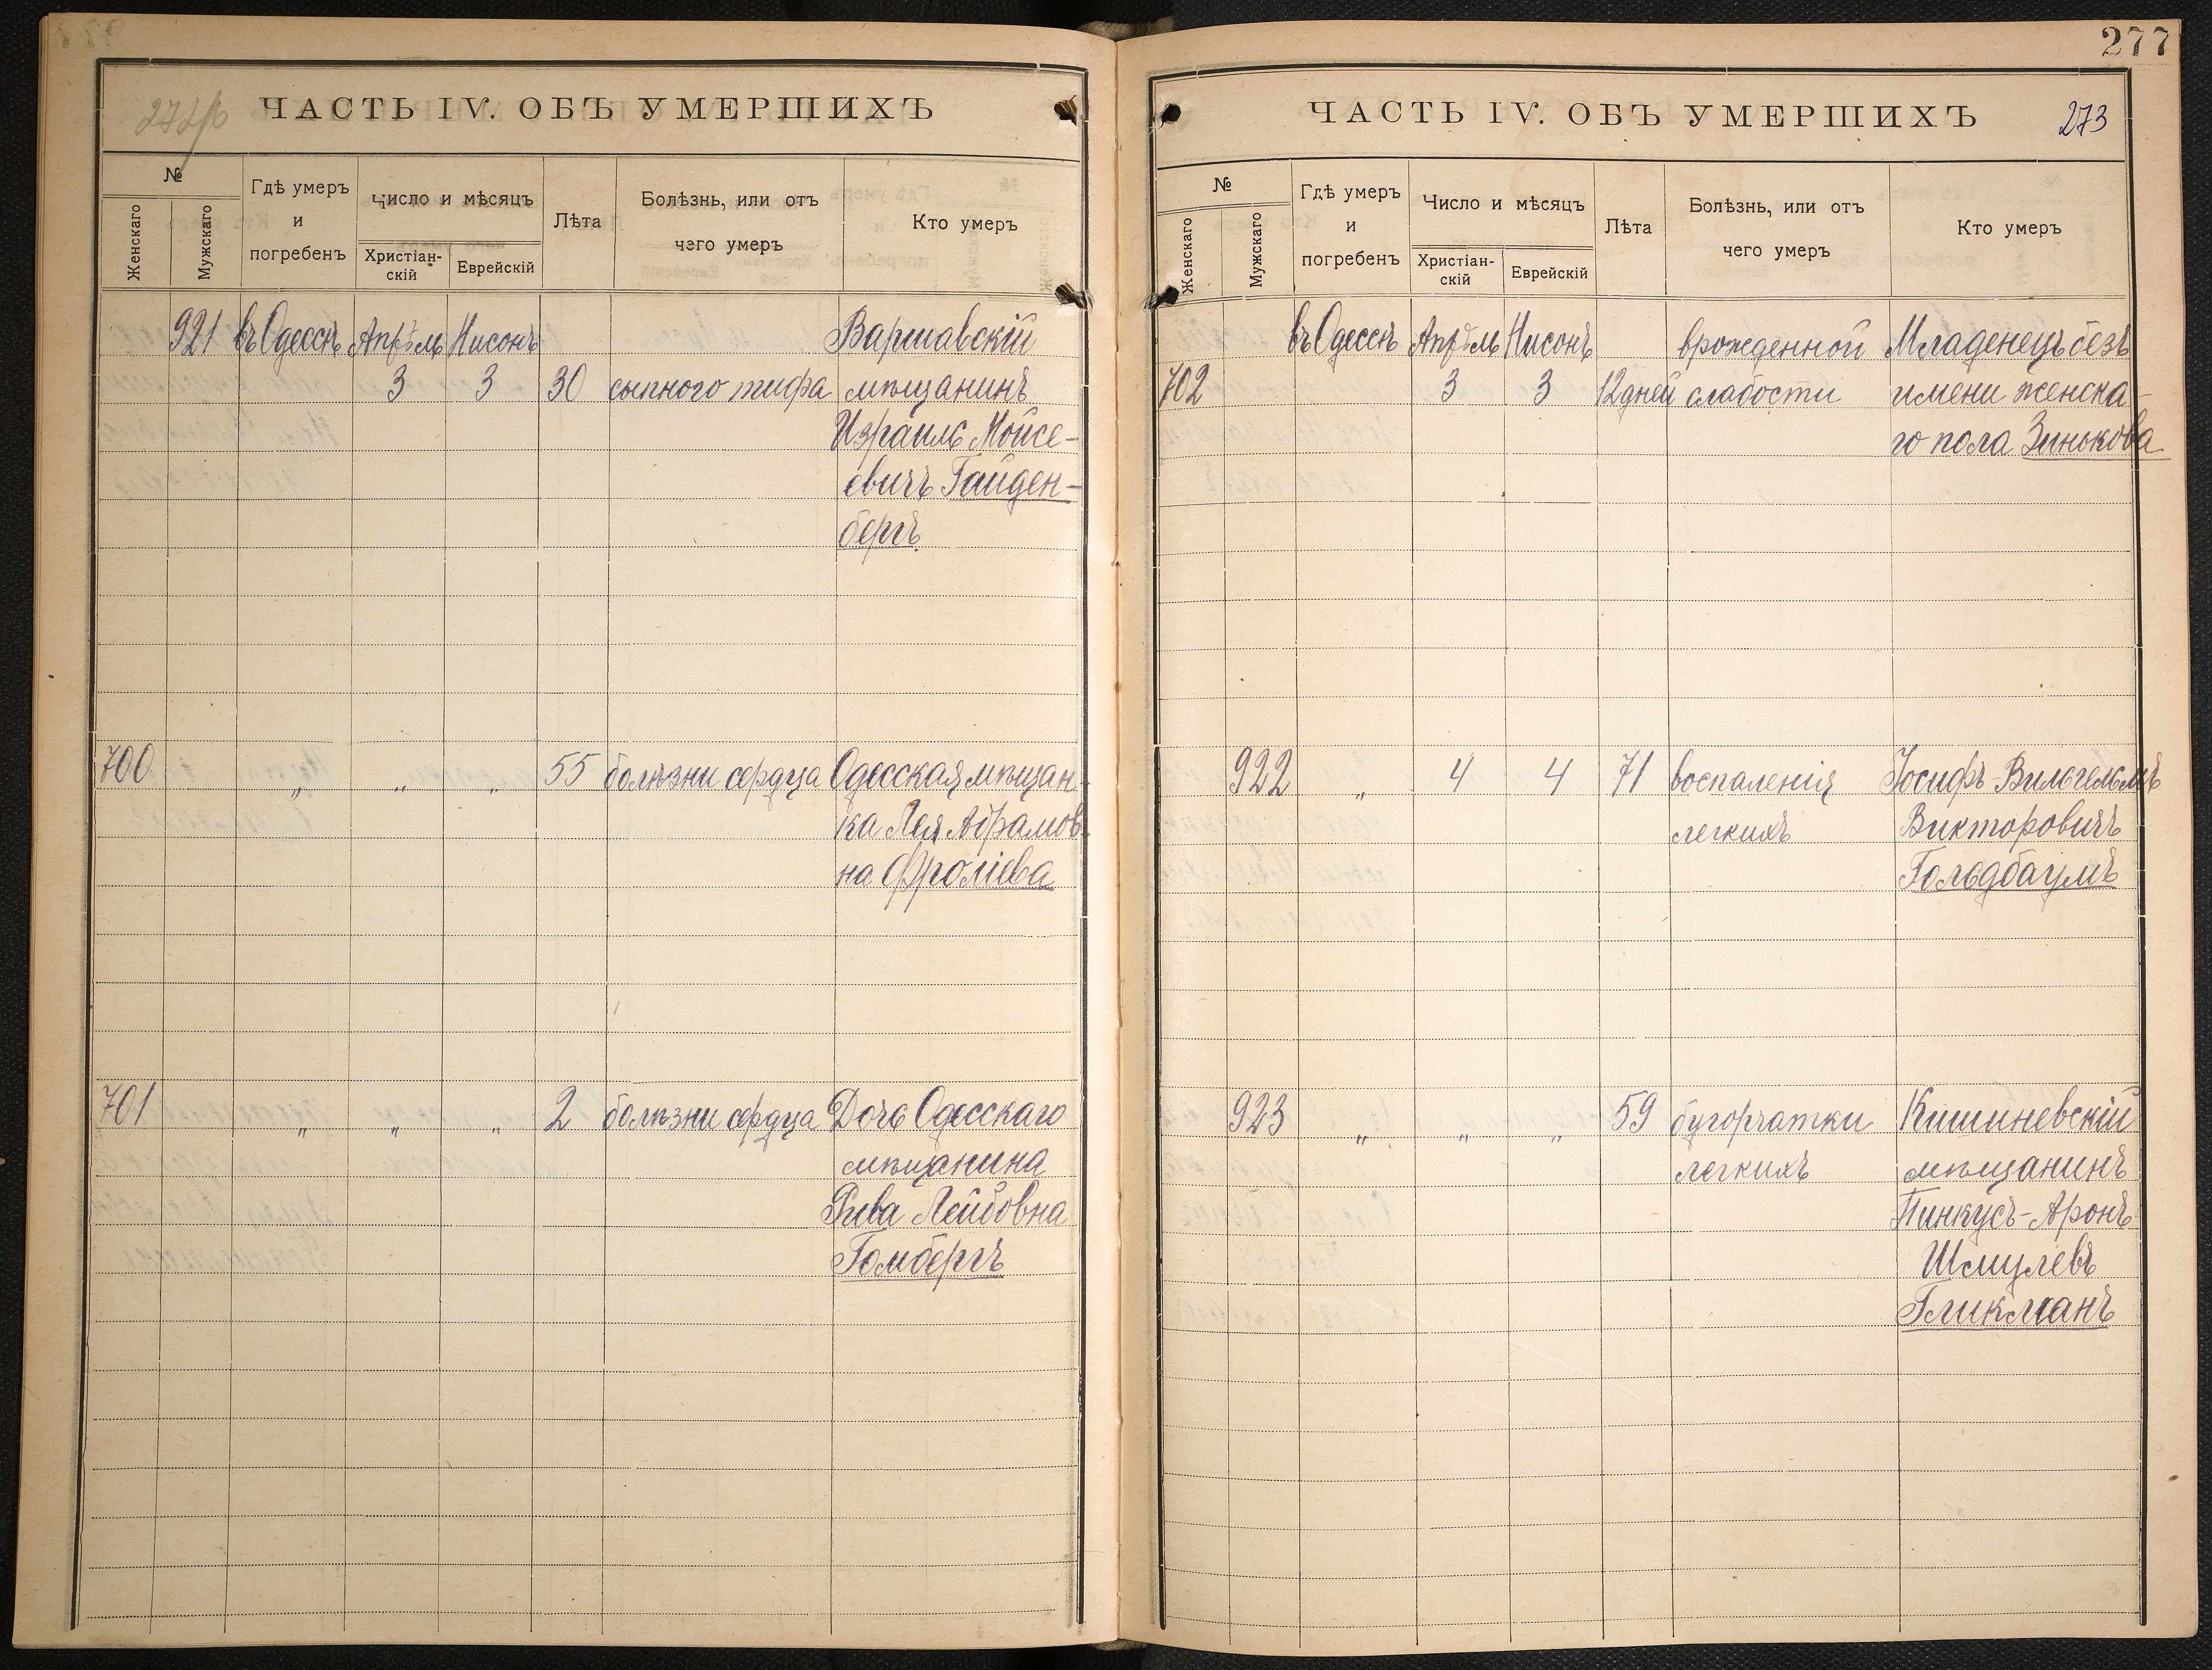 277
272об
ЧАСТЬ IV. ОБЪ УМЕРШИХЪ
№
Женскаго
Мужскаго
Гдѣ умеръ
и
погребенъ
Число и мѣсяцъ
Христіан-
скій
Еврейскій
Лѣта
Болѣзнь, или отъ
чего умеръ
Кто умеръ
921 въ Одессѣ Апрѣль Нисонъ Варшавскій
3 3 30 сыпного тифа мѣщанинъ
Израиль Мойсе-
евичъ Гайден-
бергъ
700 " " " 55 болѣзни сердца Одесская мѣщан-
ка Лея Абрамов-
на Фролiева
701 " " " 2 болѣзни сердца Дочь Одесскаго
мѣщанина
Рива Лейбовна
Гомбергъ
ЧАСТЬ IV. ОБЪ УМЕРШИХЪ
273
№
Женскаго
Мужскаго
Гдѣ умеръ
и
погребенъ
Число и мѣсяцъ
Христіан-
скій
Еврейскій
Лѣта
Болѣзнь, или отъ
чего умеръ
Кто умеръ
въ Одессѣ Апрѣль Нисонъ врожденной Младенецъ безъ
702 3 3 12 дней слабости имени женска-
го пола Зинькова
922 " 4 4 71 воспаленія Іосифъ-Вильгельмъ
легкихъ Викторовичъ
Гольдбаумъ
923 " " " 59 бугорчатки Кишиневскій
легкихъ мѣщанинъ
Пинкусъ-Аронъ
Шмулевъ
Гликманъ